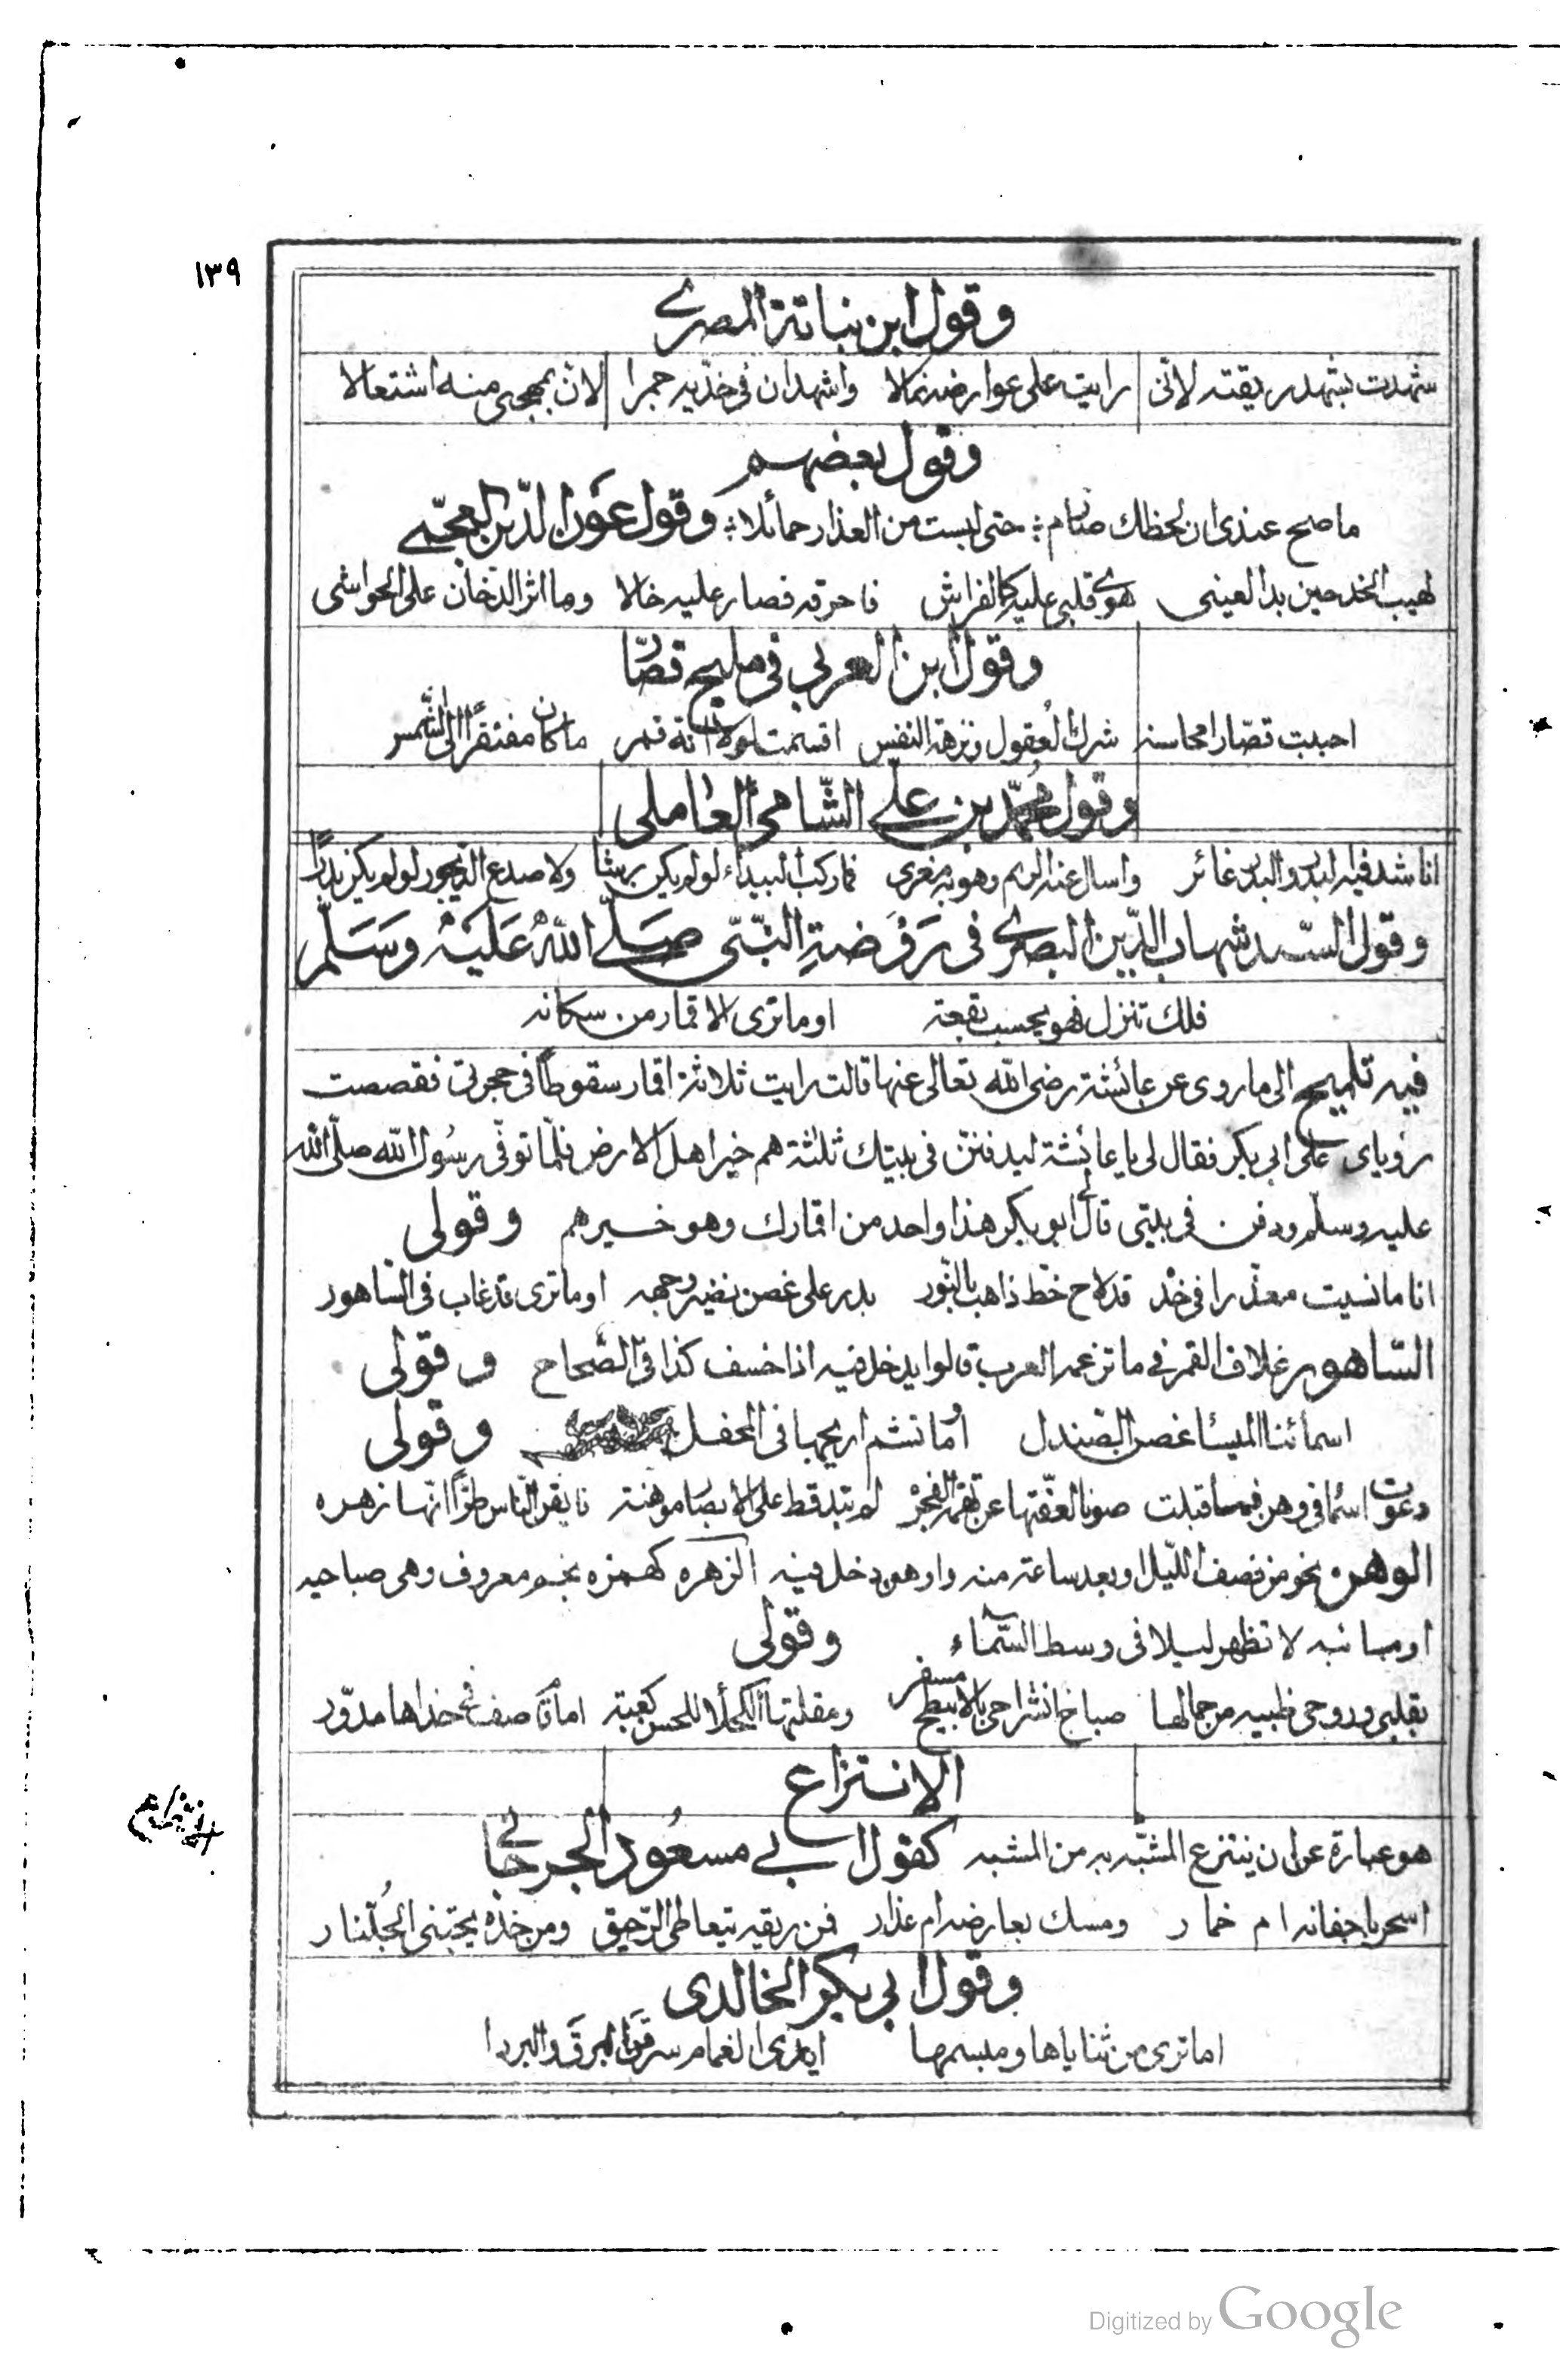 ١٣٩
وقول ابن نباتة المصري
شهدت بشهد ريقته لانّى رايت على عوارضه نمالا واشهد ان فى خدّيه جمرا لانّ بمهجتى منه اشتعالا
وقول بعضهم
ما صح عندى ان لحظك صارم حتى لبست من العذار حمائلا وقول عون الدّين العجمّى
لهيب الخد حين بدا لعينى هوى قلبى عليه كالفراش فاحرقه فصار عليه خالا وها اثر الدّخان على الحواشى
وقول ابن العربى فى مليح قصّار
احببت قصّارا محاسنه شرك العقول ونزهة النفس اقسمت لولا انّه قمر ما كان مفتقرًا الى الشّمس
وقول محمّد بن علىّ الشّامى العاملى
اناشد فيه البدر والبدر غائر واسال عنه الريم وهو به مغرى فما ركب البيداء لو لم يكن رشا ولا صدع الدّيجور لو لم يكن بدرًا
وقول السّيد شهاب الدّين البصرى فى رَوْضةِ النّبىّ صَلّى اللهُ عَلَيْهِ وَسَلّم
فلك تنزل فهو يحسب بقعة او ما ترى الاقمار من سكانه
فيه تلميح الى ما روى عن عائشة رضى الله تعالى عنها قالت رايت ثلاثة اقمار سقوطاً فى حجرتى فقصصت
رؤياى على ابى بكر فقال لى يا عائشة ليدفننّ فى بيتك ثلثة هم خير اهل الارض فلمّا توفّى رسُول الله صلّى الله
عليه وسلّم ودفن فى بيتى قال لى ابو بكر هذا واحد من اقمارك وهو خيرهم وقولى
انا ما نسيت معذّرا فى خدّ قد لاح خطّ ذاهب بالنّور بدر على غصن نضير وجهه او ما ترى قد غاب فى السّاهور
السّاهور غلاف القمر فى ما تزعمه العرب قالوا يدخل فيه اذا خسف كذا فى الصّحاح وقولى
اسمائنا الميساء غصن الصّندل اما نشم اريجها فى المحفل وقولى
دعوت اسماء فى وهن فما قبلت صونا لعفّتها عن تهمة الفجره لم تبد قط على الابصار موهنة فايقن النّاس طرًّا انّها زهره
الوهن نحو من نصف اللّيل او بعد ساعة منه واوهن دخل فيه الزهره كهمزه نجم معروف وهى صباحيه
او مسائيه لا تظهر ليلا فى وسط السّماء وقولى
بقلبى وروحى ظبيه من جمالها صباح انشراحى بالابيطح مسفر ومقلتها الكحلاء للحسن كعبة اما قاصف فى خداها مدوّر
الانتزاع
الانتزاع
هو عبارة عن ان ينتزع المشبّه به من المشبه كقول ابى مسعُود الجرجانى
اسحر باجفانه ام خمار ومسك بعارضه ام عذار فمن ريقه يتعاطى الرّحيق ومن خدّه يجتنى الجُلّنار
وقول ابى بكر الخالدى
اما ترى من ثناياها ومبسمها ايدى الغمام سرقن البرقَ والبردا
Digitized by Google